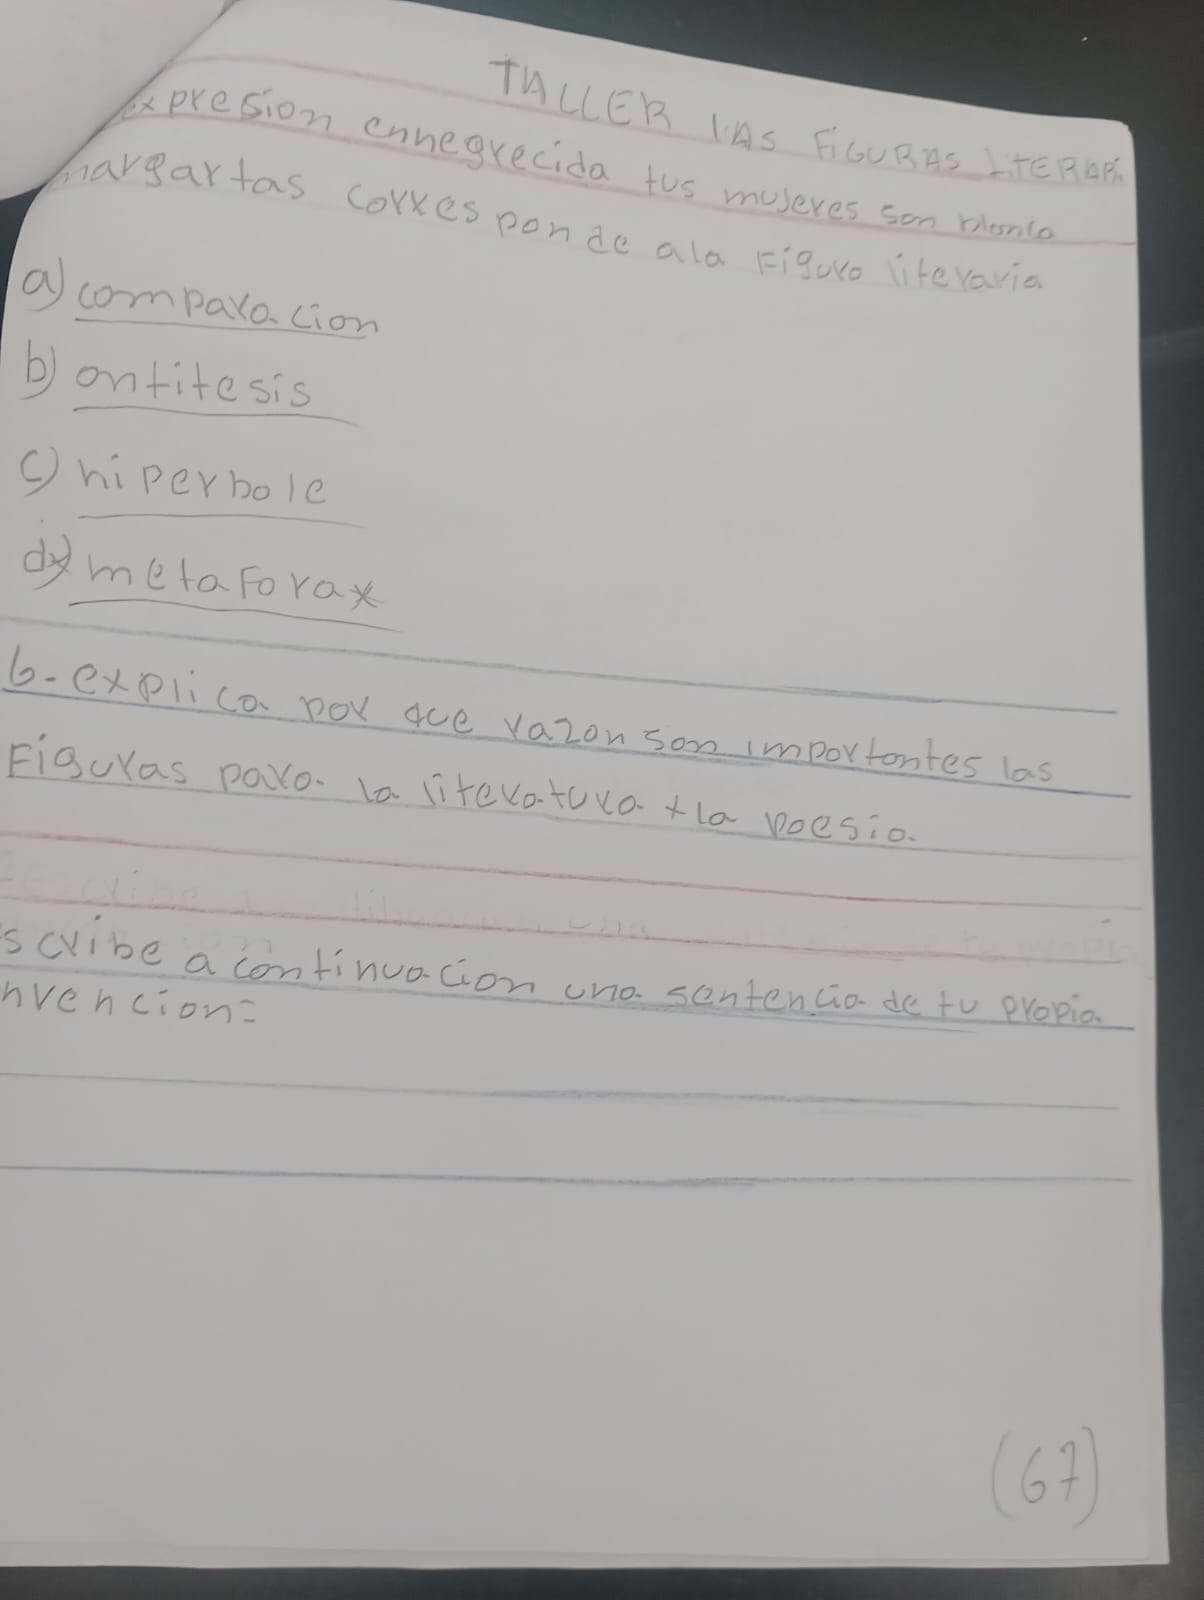 TALLER LAS FIGURAS LITERARI
expresion ennegrecida tus mujeres son blanca
margartas corresponde ala Figura literaria
a) comparacion
b) antitesis
c) hiperbole
d) metafora x
6- explica por que razon son importantes las
Figuras para la literatura y la poesia
scribe a continuacion una sentencia de tu propia
nvencion=
(67)